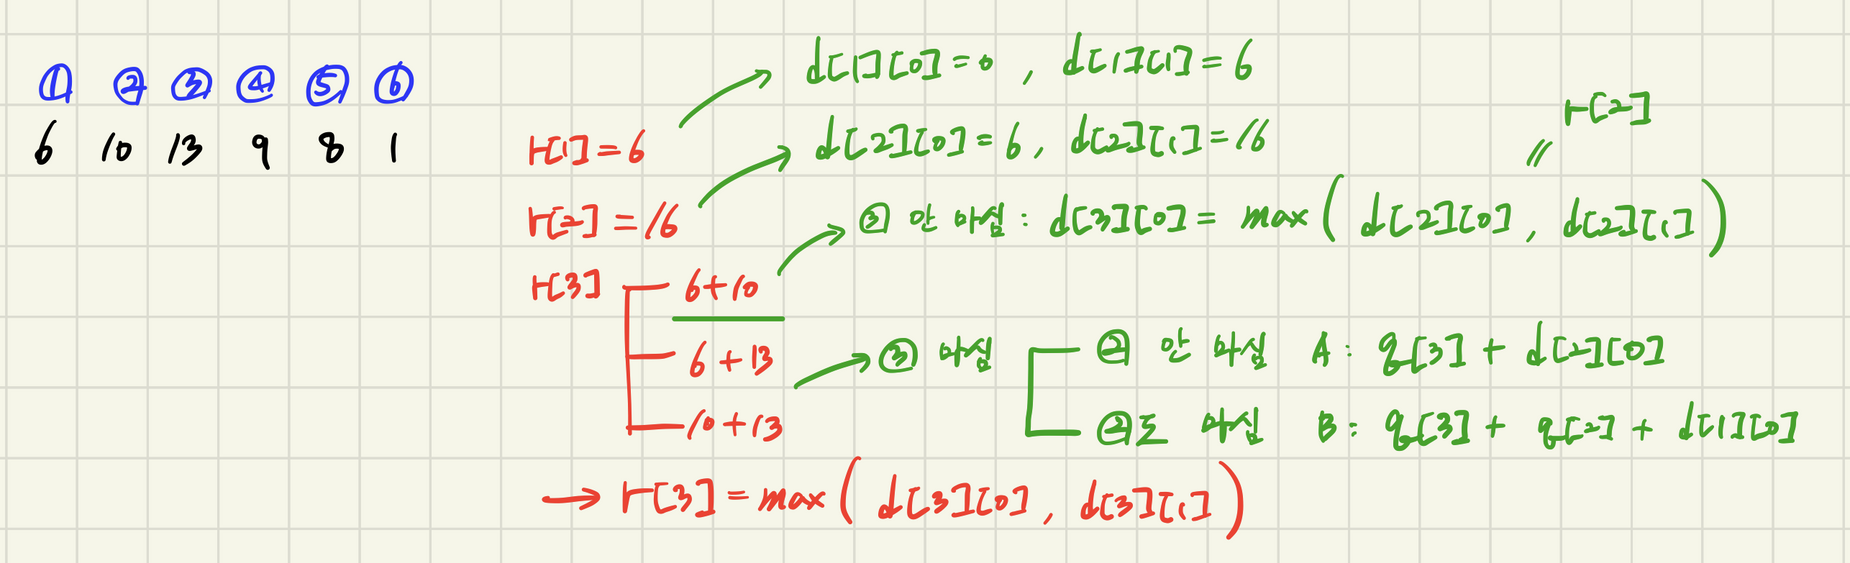 ① ② ③ ④ ⑤ ⑥
6 10 13 9 8 1
r[1] = 6
d[1][0] = 0 , d[1][1] = 6
r[2] = 16
d[2][0] = 6, d[2][1] = 16
r[2]
〃
r[3]
6+10
③ 안 마심 : d[3][0] = max ( d[2][0] , d[2][1] )
6 + 13
10 + 13
③ 마심
② 안 마심 A : q[3] + d[2][0]
②도 마심 B : q[3] + q[2] + d[1][0]
→ r[3] = max ( d[3][0] , d[3][1] )